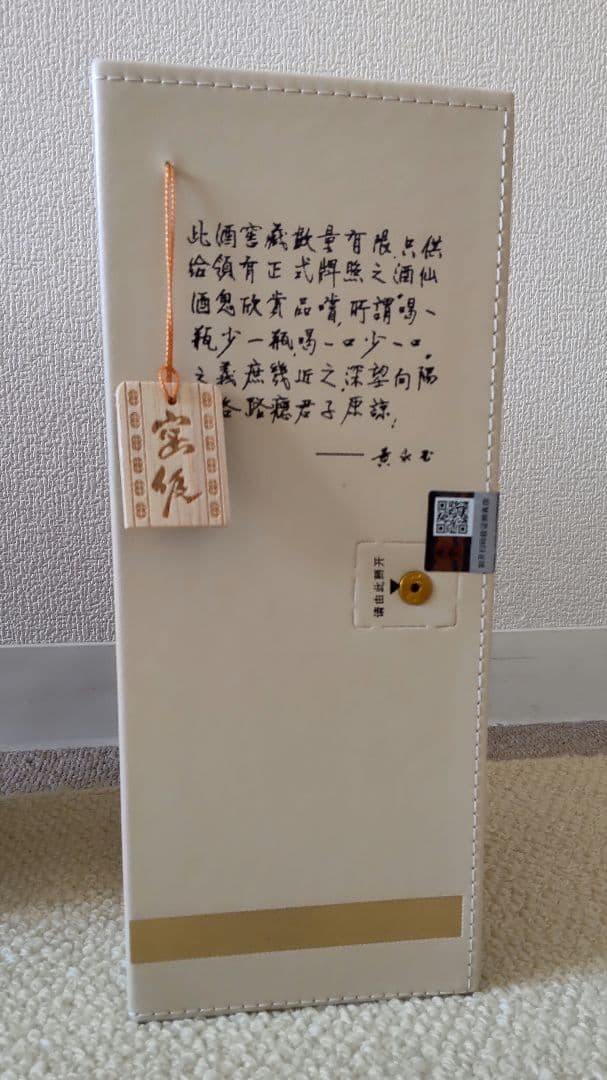 此酒窖藏數量有限,只供
給領有正式牌照之酒仙
酒鬼欣賞品嚐,所謂“喝一
瓶少一瓶,喝一口少一口”
之義庶幾近之,深望向隅
各路癮君子原諒!
——黄永玉
请由此开